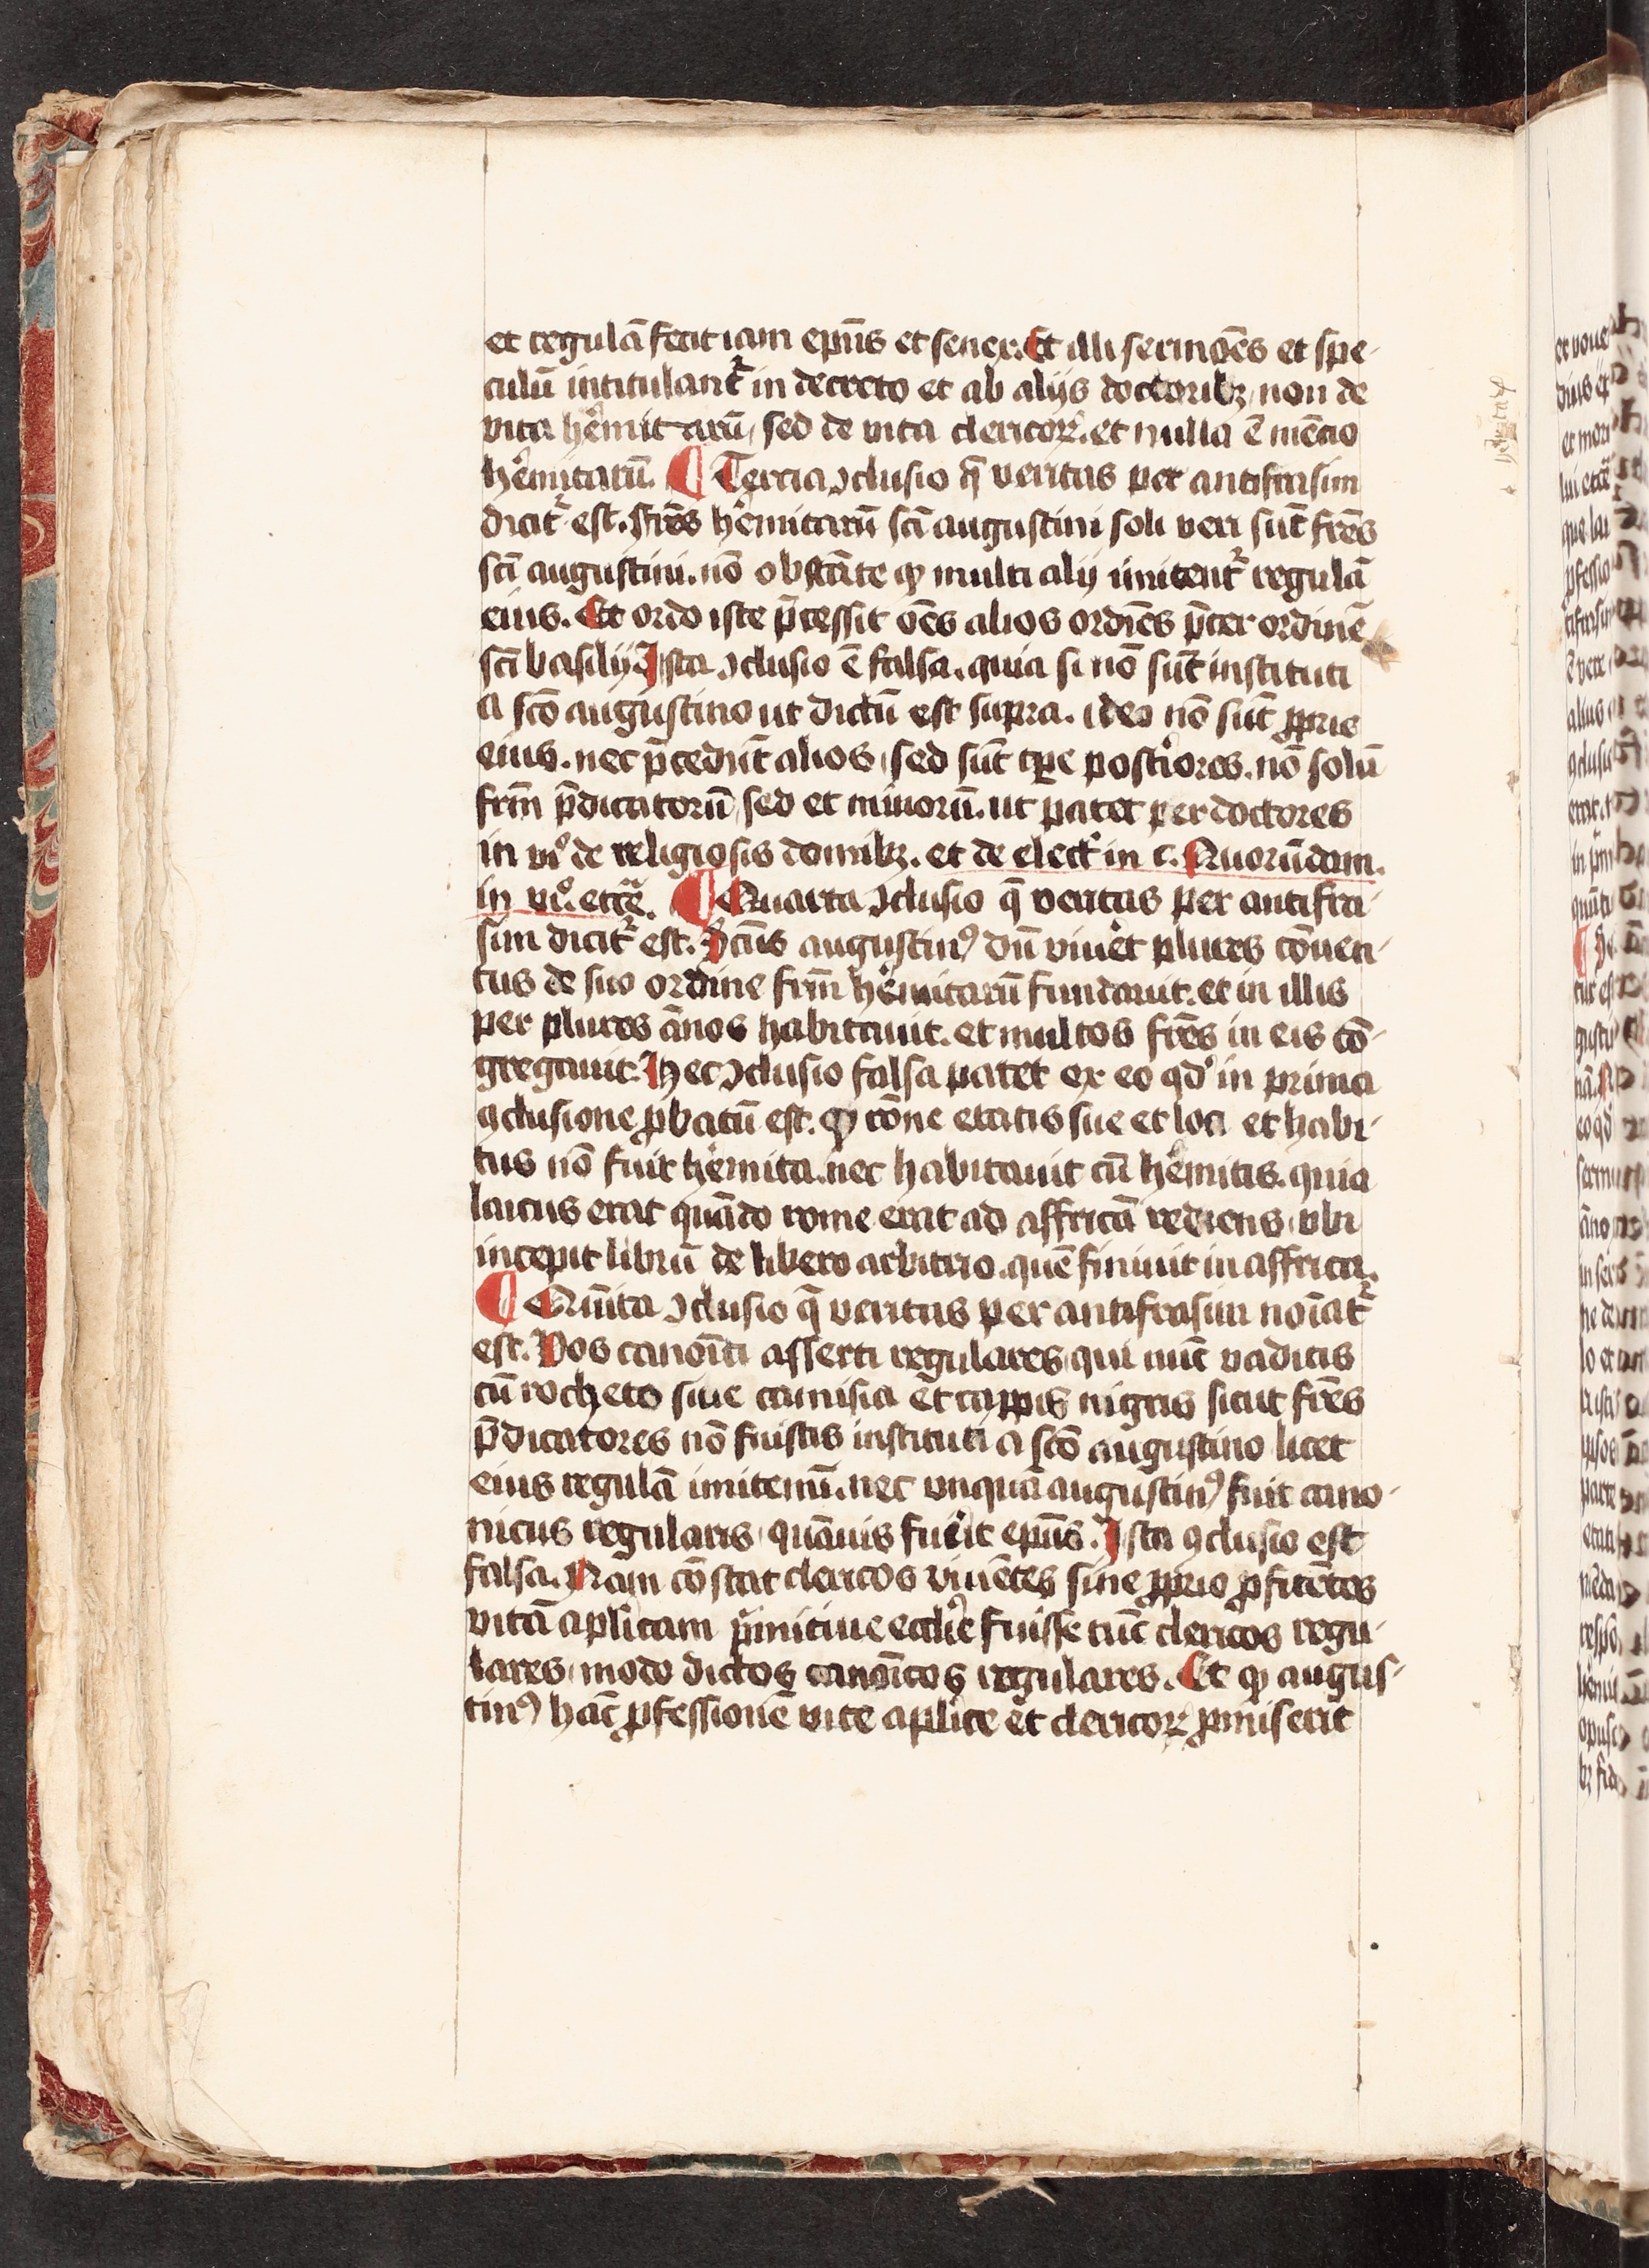 et regulā fecit iam ep̄us et senex. Et illi sermōes et spe-
culū intitulantᷣ in decreto et ab alijs doctoribꝫ, non de
vita hēmitarū, sed de vita clericoꝝ. et nulla ē mēcio
hēmitarū. ¶ Tercia ɔclusio q̄ veritas per antifrasim
dicitᷣ est. ffrēs hēmitarū scī augustini soli veri sūt frēs
scī augustini. nō obstāte ꝙ multi alij imitentᷣ regulā
eius. Et ordo iste p̄cessit oēs alios ordīes p̄ter ordinē
scī basilij Ista ɔclusio ē falsa. quia si nō sūt instituti
a scō augustino ut dictū est supra. ideo nō sūt ꝓprie
eius. nec p̄cedūt alios, sed sūt tꝑe postiores. nō solū
frm̄ p̄dicatorū, sed et minorū. ut patet per doctores
in viͦ de religiosis domibꝫ. et de elect̄ in c. Quorūdam.
in viͦ. etcē. ¶ Quarta ɔclusio q̄ veritas per antifra-
sim dicitᷣ est. Scūs augustinꝰ dū viuēt plures cōuen-
tus de suo ordine frm̄ hēmitarū fundauit. et in illis
per plures ānos habitauit. et multos frēs in eis cō-
gregauit. Hec ɔclusio falsa patet ex eo qdͦ in prima
ꝯclusione ꝓbatū est. ꝙ rōne etatis sue et loci et habi-
tus nō fuit hēmita. nec habitauit cū hēmitis. quia
laicus erat quādo rome erat ad affricā rediens, vbi
incepit librū de libero arbitrio. quē finiuit in affrica.
¶ Quīta ɔclusio q̄ veritas per antifrasim noīatᷣ
est. Vos canoīci asserti regulares, qui nūc vaditis
cū rocheto siue camisia et cappis nigris sicut frēs
p̄dicatores nō fuistis instituti a scō augustino licet
eius regulā imitemī. nec vnquā augustinꝰ fuit cano-
nicus regularis, quāuis fuēit ep̄us. Ista ꝯclusio est
falsa. Nam cōstat clericos viuētes sine ꝓprio ꝓfitētes
vitā aplicam pͥmitiue ecclie fuisse tūc clericos regu-
lares, modo dictos canoīcos regulares. Et ꝙ augus-
tinꝰ hāc ꝓfessionē vite aplice et clericoꝝ ꝓmiserit